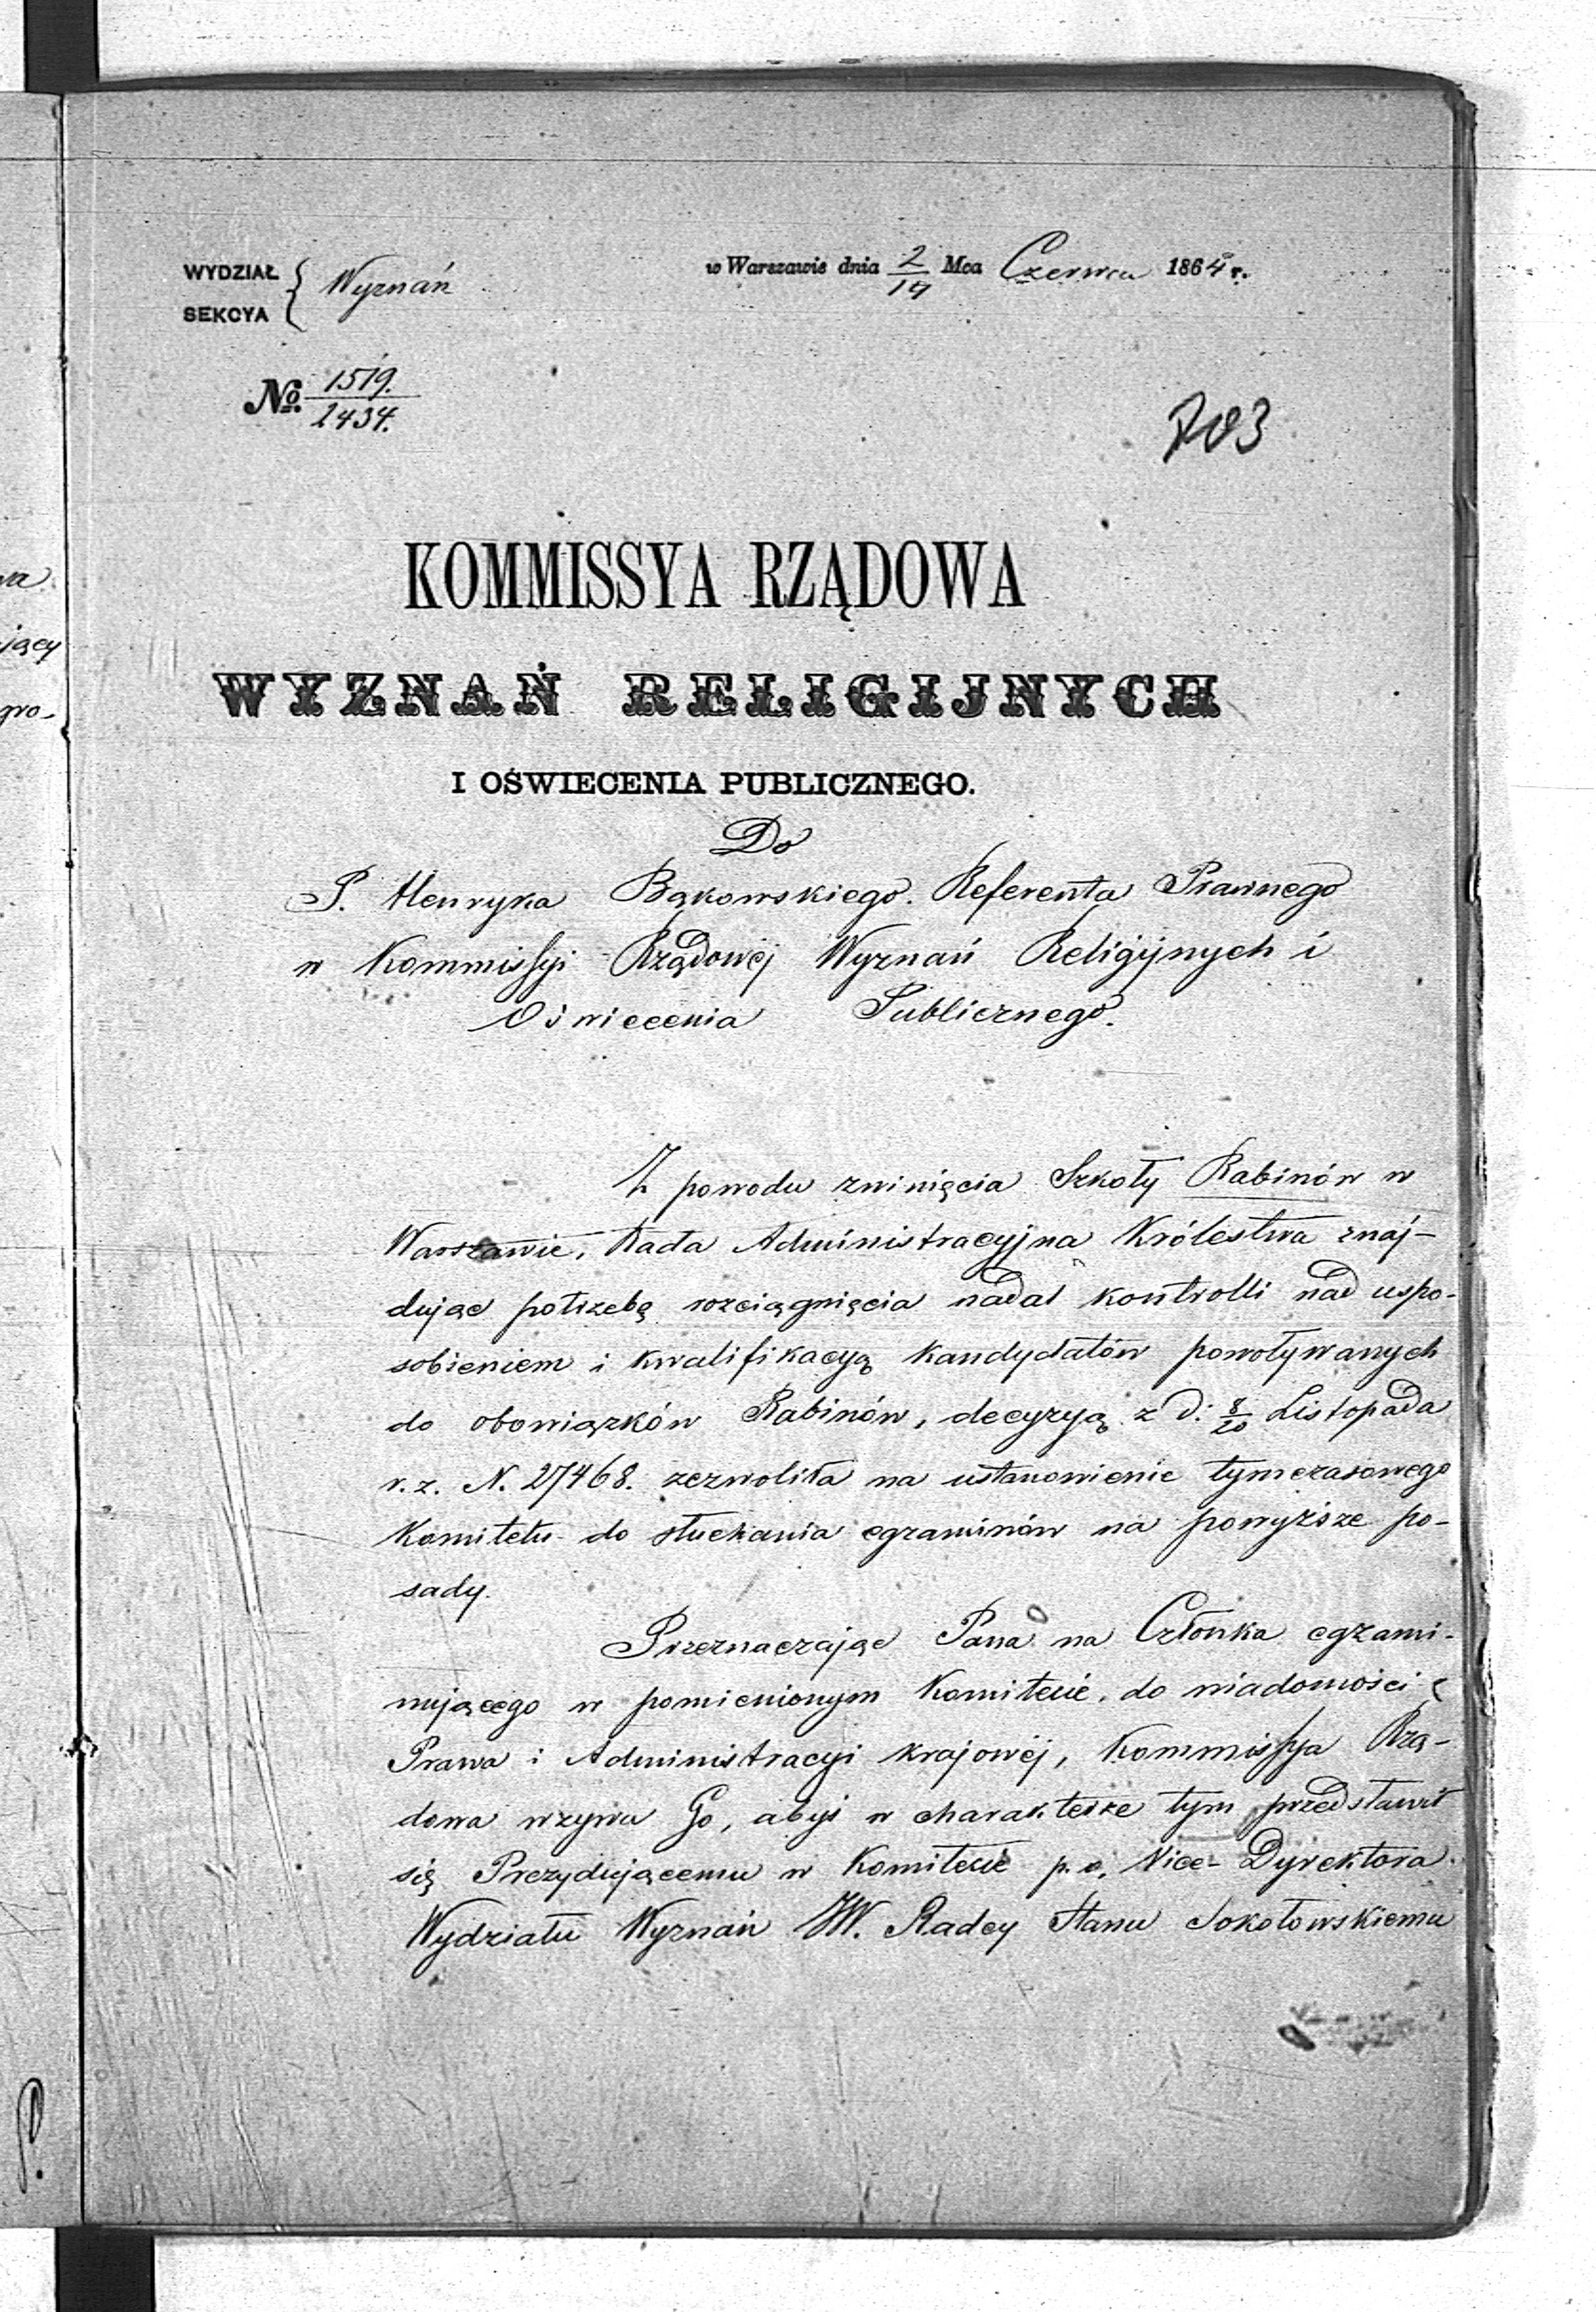 WYDZIAŁ
SEKCYA
Wyznań
w Warszawie dnia 2/14 Mca Czerwca 1864 r.
№ 1519.
2434.
703
KOMMISSYA RZĄDOWA
WYZNAŃ RELIGIJNYCH
I OŚWIECENIA PUBLICZNEGO.
Do
P. Henryka Bąkowskiego. Referenta Prawnego
w Kommissyi Rządowéj Wyznań Religijnych i
Oświecenia Publicznego.
Z powodu zwinięcia Szkoły Rabinów w
Warszawie, Rada Administracyjna Królestwa znaj-
dując potrzebę rozciągnięcia nadal kontrolli nad uspo-
sobieniem i kwalifikacyą kandydatów powoływanych
do obowiązków Rabinów, decyzyą z d: 8/20 Listopada
r. z. N. 27468. zezwoliła na ustanowienie tymczasowego
Komitetu do słuchania egzaminów na powyższe po-
sady.
Przeznaczając Pana na Członka egzami-
nującego w pomienionym Komitecie, do wiadomości z
Prawa i Administracyi krajowéj, Kommissya Rzą-
dowa wzywa Go, abyś w charakterze tym przedstawił
się Prezydującemu w Komitecie p. o. Vice-Dyrektora
Wydziału Wyznań JW. Radcy Stanu Sokołowskiemu
wa
jący
gro-
P.